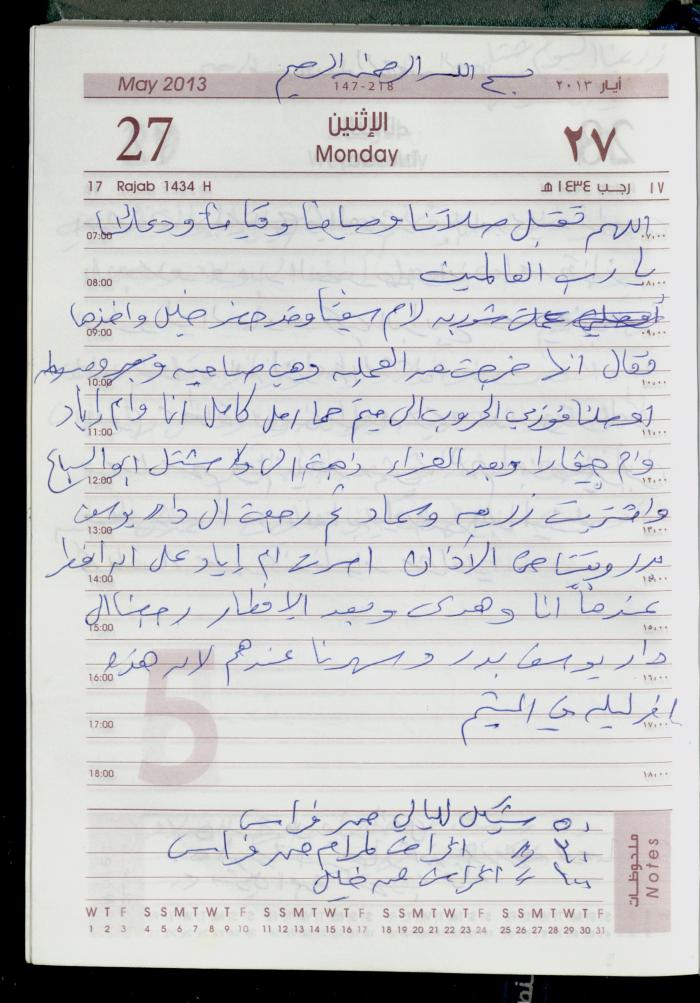 بسم الله الرحمن الرحيم
May 2013
147-218
أيار ٢٠١٣
27
الإثنين
Monday
٢٧
17 Rajab 1434 H
١٧ رجب ١٤٣٤ هـ
اللهم تقبل صلاتنا وصيامنا وقيامنا ودعائنا
07:00 ٠٧,٠٠
يا رب العالمين
08:00 ٠٨,٠٠
شوربه لام وقد حضر خليل واخذها
09:00 ٠٩,٠٠
فقال انها خرجت من العمليه وهي صاحيه
10:00 ١٠,٠٠
اوصلنا فوزي الخروب الى انا وام اياد
11:00 ١١,٠٠
وام وبعد العزاء ذهبت الى مشتل ابو السباع
12:00 ١٢,٠٠
واشتريت زريعه وسماد ثم رجعت الى دار يوسف
13:00 ١٣,٠٠
بدر وبقينا حتى الأذان اصرت ام اياد على ان افطر
14:00 ١٤,٠٠
عندها انا وهدى وبعد الافطار رجعنا الى
15:00 ١٥,٠٠
دار يوسف بدر وسهرنا عندهم لان هذه
16:00 ١٦,٠٠
اخر ليله في
17:00 ١٧,٠٠
18:00 ١٨,٠٠
5
٥٠ شيكل ليالي من فراس
٢٠ // اكراميه لمرام من فراس
١٠٠ // اكراميه من خليل
ملحوظات
Notes
W T F S S M T W T F S S M T W T F S S M T W T F S S M T W T F
1 2 3 4 5 6 7 8 9 10 11 12 13 14 15 16 17 18 19 20 21 22 23 24 25 26 27 28 29 30 31